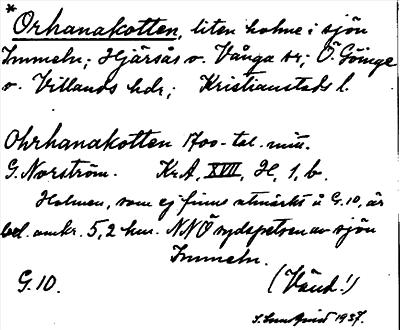 *Orhanakotten, liten holme i sjön
Immeln; Hjärsås o. Vånga sr; Ö. Göinge
o. Villands hdr; Kristianstads l.
Ohrhanakotten 1700-tal. mitt.
G. Norström. KrA, XVII, H, 1, b.
Holmen, som ej finns utmärkt å G.10, är
bel. omkr. 5,2 km. NNÖ sydspetsen av sjön
Immeln.
G.10. (Vänd!)
1937.